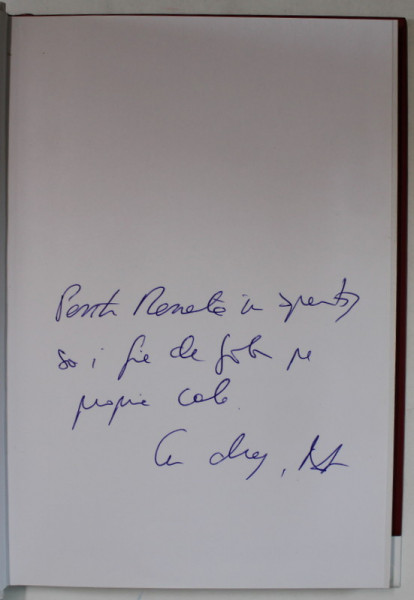 Pentru Renata în speranța
să-i fie de folos pe
propria cale.
Cu drag,